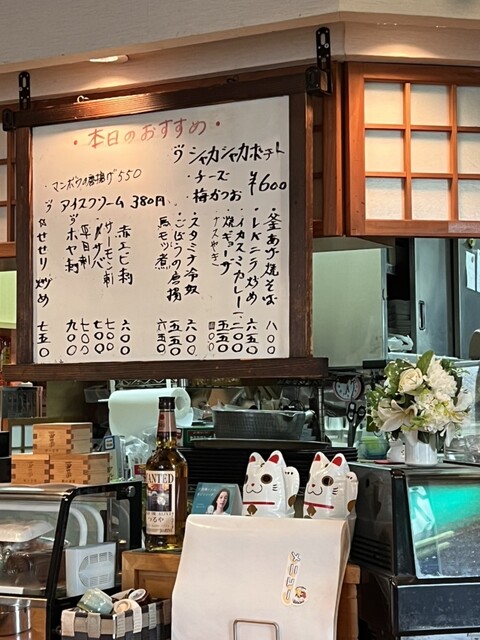 ・本日のおすすめ・
マンボウの唐揚げ 550
アイスクリーム 380円
シャカシャカポテト
・チーズ
・梅かつお
¥600
釜あげ焼そば
レバニラ炒め 六五〇
イカスミカレー 一二〇〇
焼ギョーザ
ナスやき
スタミナ冷奴
ごぼうの唐揚 五五〇
馬モツ煮 六五〇
赤エビ刺 六〇〇
サーモン刺 七〇〇
〆サバ 七〇〇
ホヤ刺 九〇〇
せせり炒め 七五〇
WANTED
メニュー